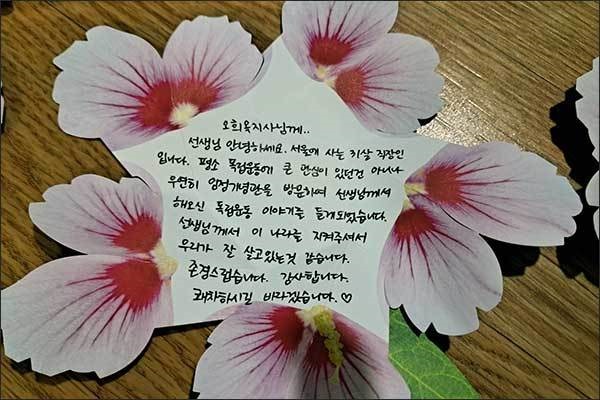 오희옥지사님께..
선생님 안녕하세요. 서울에 사는 31살 직장인
입니다. 평소 독립운동에 큰 관심이 있던건 아니나
우연히 임정기념관을 방문하여 선생님께서
해오신 독립운동 이야기를 듣게되었습니다.
선생님께서 이 나라를 지켜주셔서
우리가 잘 살고있는것 같습니다.
존경스럽습니다. 감사합니다.
쾌차하시길 바라겠습니다. ♡